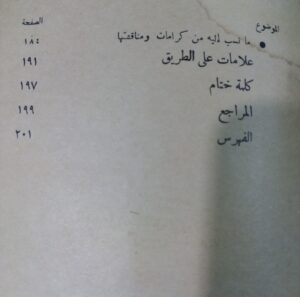 الموضوع الصفحة
ما نسب إليه من كرامات ومناقشتها ١٨٤
علامات على الطريق ١٩١
كلمة ختام ١٩٧
المراجع ١٩٩
الفهرس ٢٠١